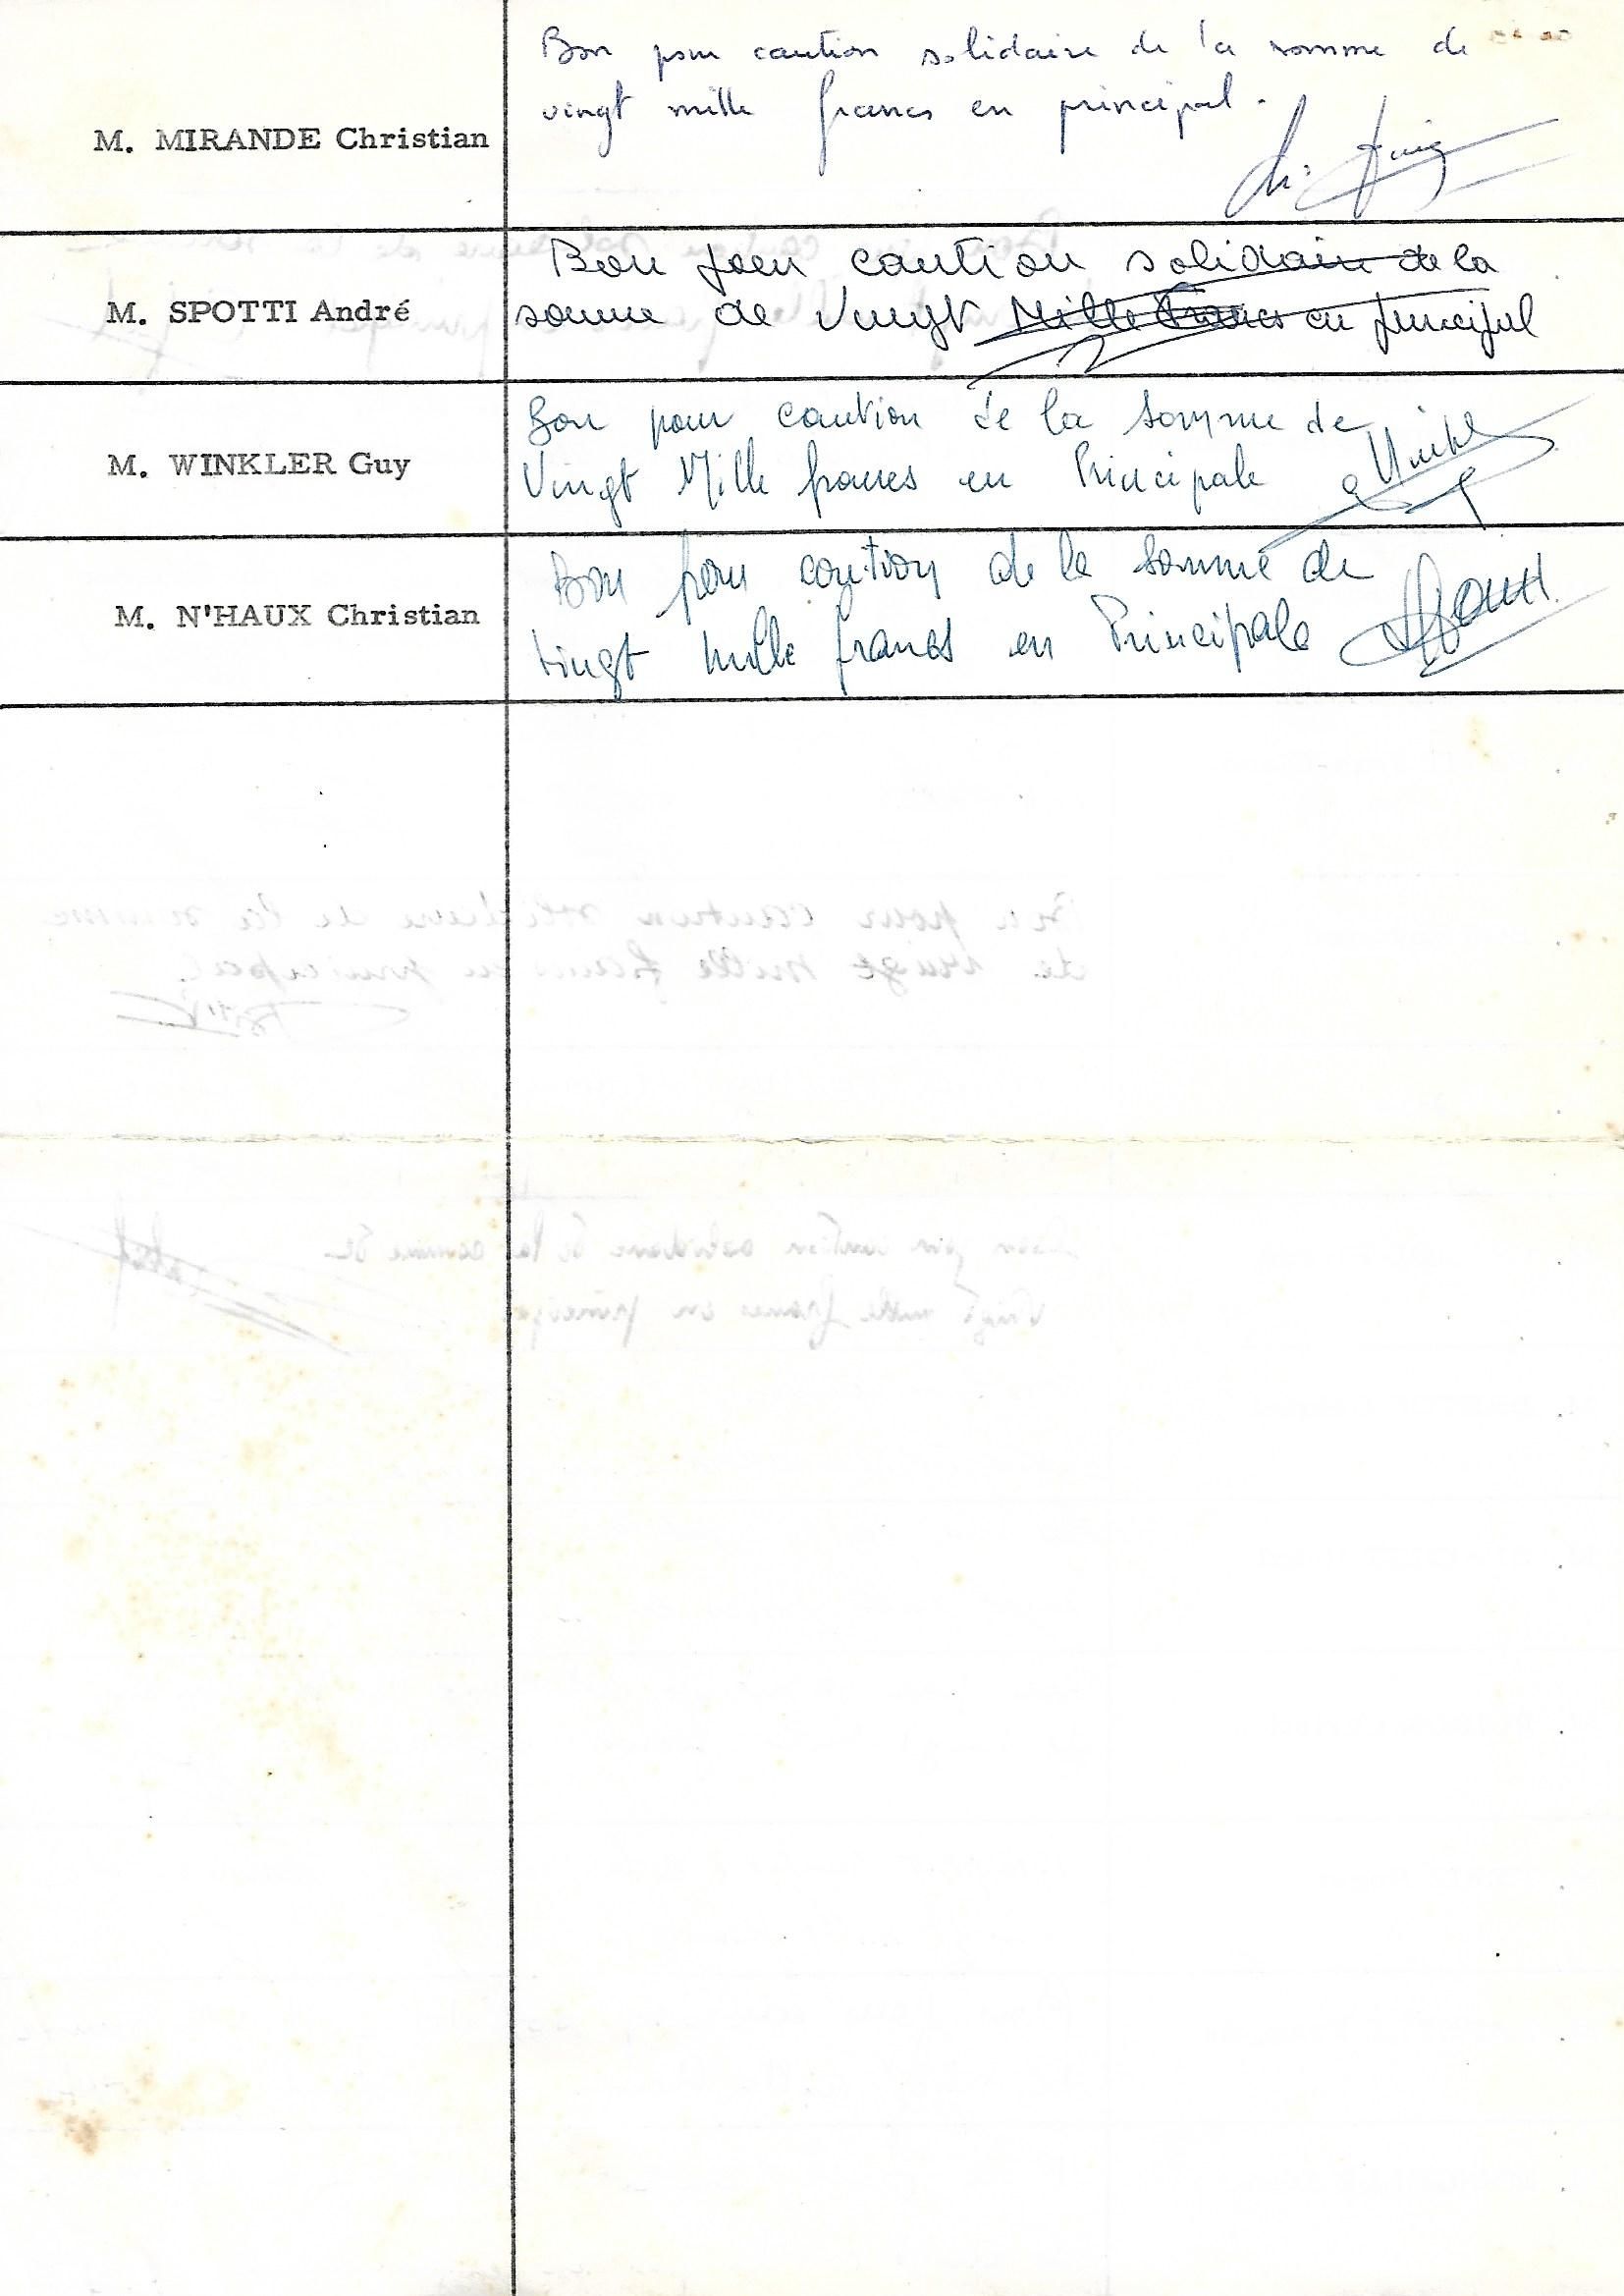 Bon pour caution solidaire de la somme de
vingt mille francs en principal.
M. MIRANDE Christian
Bon pour caution solidaire de la
M. SPOTTI André
somme de Vingt Mille Francs en principal
Bon pour caution de la somme de
M. WINKLER Guy
Vingt Mille francs en Principale
Bon pour caution de la somme de
M. N'HAUX Christian
vingt mille francs en Principale